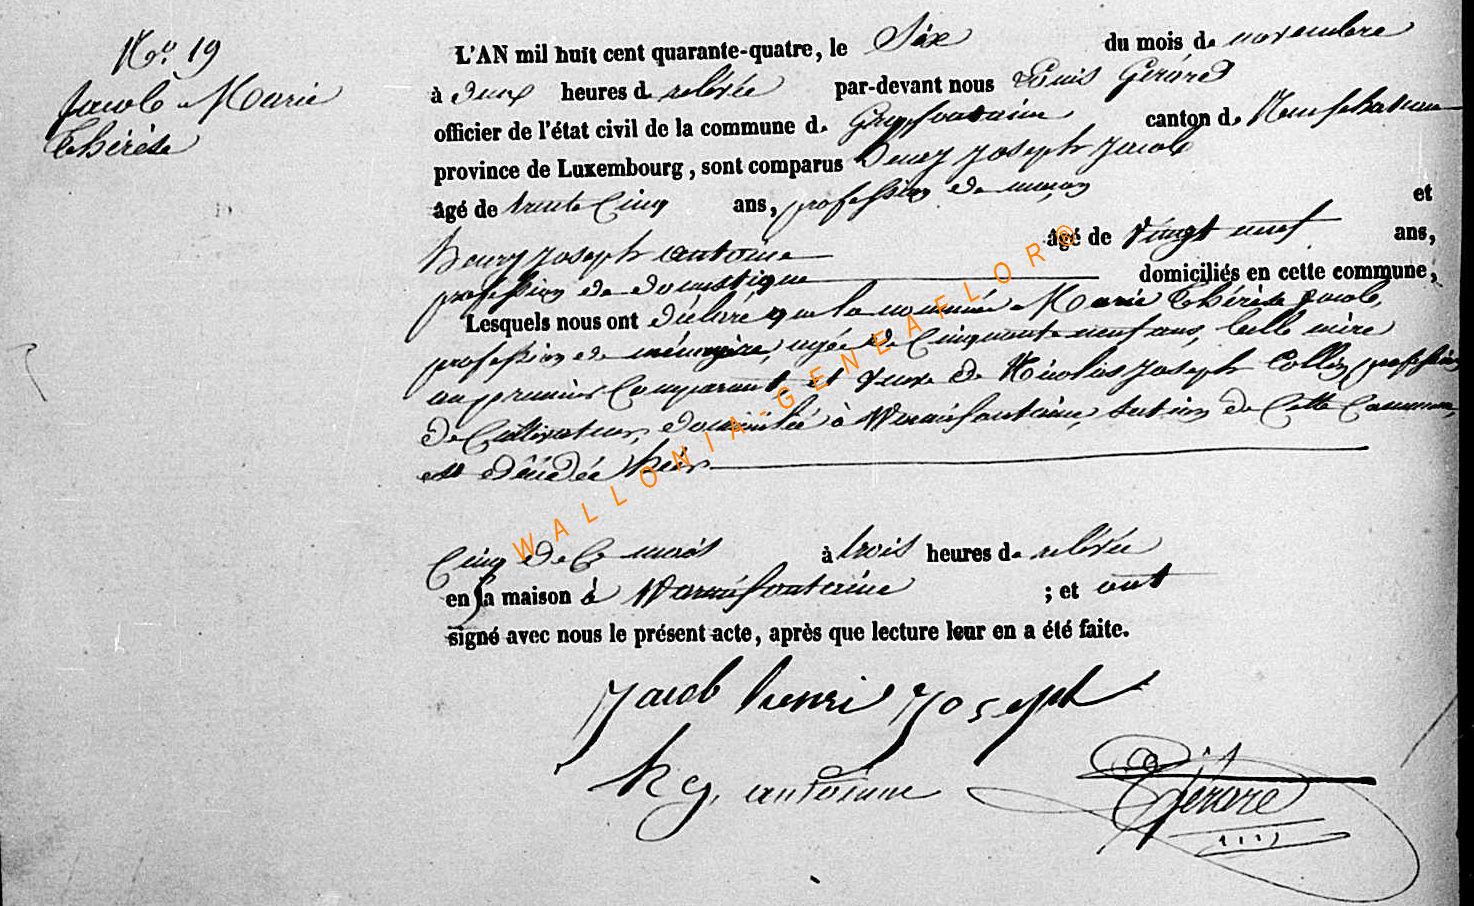 No. 19
Jacob Marie
Thérèse
L'AN mil huit cent quarante-quatre, le Six du mois de novembre
à deux heures de relevée par-devant nous Louis Gérard
officier de l'état civil de la commune de Grapfontaine canton de Neufchateau
province de Luxembourg, sont comparus Henry Joseph Jacob
âgé de trente Cinq ans, profession de maçon et
henry joseph antoine âgé de Vingt neuf ans,
profession de domestique domiciliés en cette commune,
Lesquels nous ont déclaré que la nommée Marie Thérèse Jacob,
profession de ménagère, agée de Cinquante neuf ans, belle mère
au premier Comparant et veuve de Nicolas Joseph Collin profession
de Cultivateur, domiciliée à Warmifontaine, section de Cette Commune,
est décédée hier
Cinq de Ce mois à trois heures de relevée
en sa maison à Warmifontaine ; et ont
signé avec nous le présent acte, après que lecture leur en a été faite.
Jacob henri Joseph
hy. antoinne
Gérard
WALLONIA-GENEAFLOR©